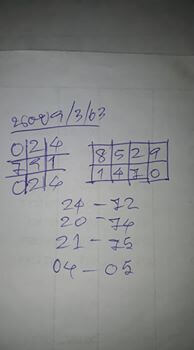 9/3/63
0 2 4
7 9 1
0 2 4
8 5 2 9
1 4 7 0
24 - 72
20 - 74
21 - 75
04 - 05